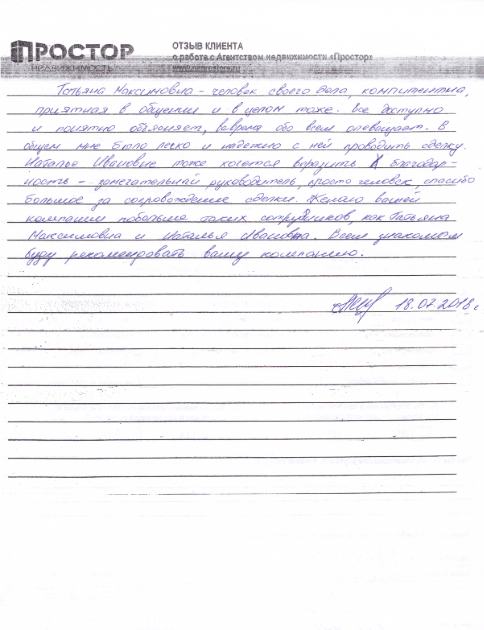 ПРОСТОР
НЕДВИЖИМОСТЬ
ОТЗЫВ КЛИЕНТА
о работе с Агентством недвижимости «Простор»
Татьяна Максимовна - человек своего дела, компитентна,
приятная в общении и в целом тоже. Все доступно
и понятно объясняет, вовремя обо всем оповещает. В
общем мне было легко и надежно с ней проводить сделку.
Наталье Ивановне тоже хочется выразить благодар-
ность - замечательный руководитель, просто человек, спасибо
большое за сопровождение сделки. Желаю вашей
компании побольше таких сотрудников, как Татьяна
Максимовна и Наталья Ивановна. Всем знакомым
буду рекомендовать вашу компанию.
18.07.2018 г